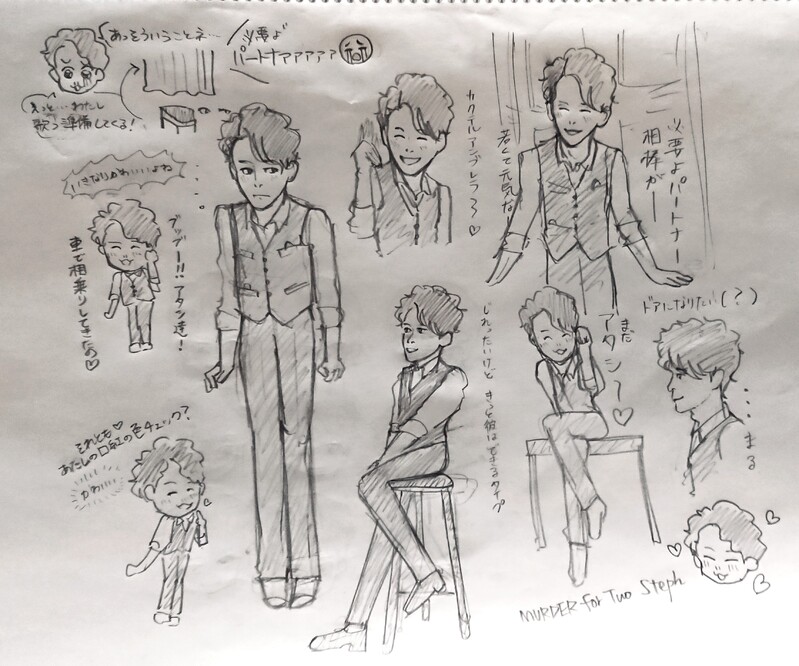 あっそういうことネ…
必要よ
パートナァァァァァ
きっと…わたし
歌う準備してくる!
いきなりかわいいよね
ブッブー!!アタシ達!
車で相乗りしてきたの♡
それとも♡
あたしの口紅の色チェック?
かわいい
カクテルアンブレラ〜♡
若くて元気な
必要よパートナー
相棒が――
じれったいけど きっと彼はできるタイプ
まだ
アタシ〜♡
ドアになりたい(?)
・・・まる
MURDER for Two Steph